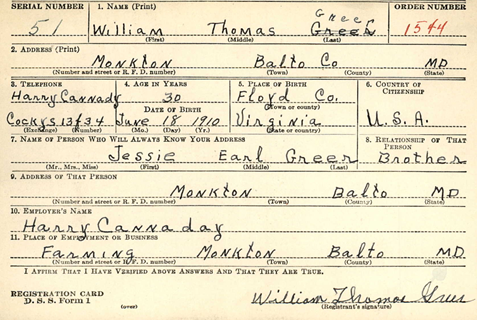 SERIAL NUMBER 1. NAME (Print) ORDER NUMBER
Greer
51 William Thomas Greer 1544
(First) (Middle) (Last)
2. ADDRESS (Print)
Monkton Balto Co MD
(Number and street or R. F. D. number) (Town) (County) (State)
3. TELEPHONE 4. AGE IN YEARS 5. PLACE OF BIRTH 6. COUNTRY OF CITIZENSHIP
Harry Cannady 30 Floyd Co.
DATE OF BIRTH (Town or county)
Cockys 13f34 June 18 1910 Virginia U.S.A.
(Exchange) (Number) (Mo.) (Day) (Yr.) (State or country)
7. NAME OF PERSON WHO WILL ALWAYS KNOW YOUR ADDRESS 8. RELATIONSHIP OF THAT PERSON
Jessie Earl Greer Brother
(Mr., Mrs., Miss) (First) (Middle) (Last)
9. ADDRESS OF THAT PERSON
Monkton Balto MD
(Number and street or R. F. D. number) (Town) (County) (State)
10. EMPLOYER'S NAME
Harry Cannaday
11. PLACE OF EMPLOYMENT OR BUSINESS
Farming Monkton Balto MD
(Number and street or R. F. D. number) (Town) (County) (State)
I AFFIRM THAT I HAVE VERIFIED ABOVE ANSWERS AND THAT THEY ARE TRUE.
REGISTRATION CARD
D. S. S. Form 1 (over) William Thomas Greer
(Registrant's signature)